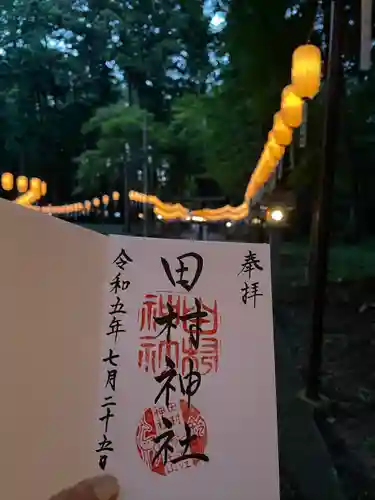 奉拝
田村神社
令和五年七月二十五日